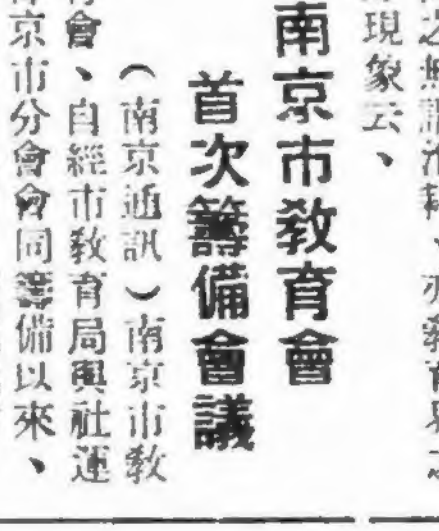 現象云、
南京市教育會
首次籌備會議
（南京通訊）南京市教
育會、自經市教育局與社運
京市分會會同籌備以來、